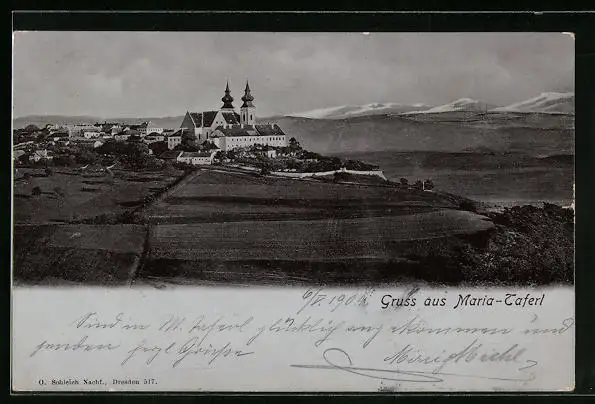 Gruss aus Maria-Taferl
Sind in M. Taferl glücklich angekommen und
senden herzl. Grüsse
O. Schleich Nachf., Dresden 517.